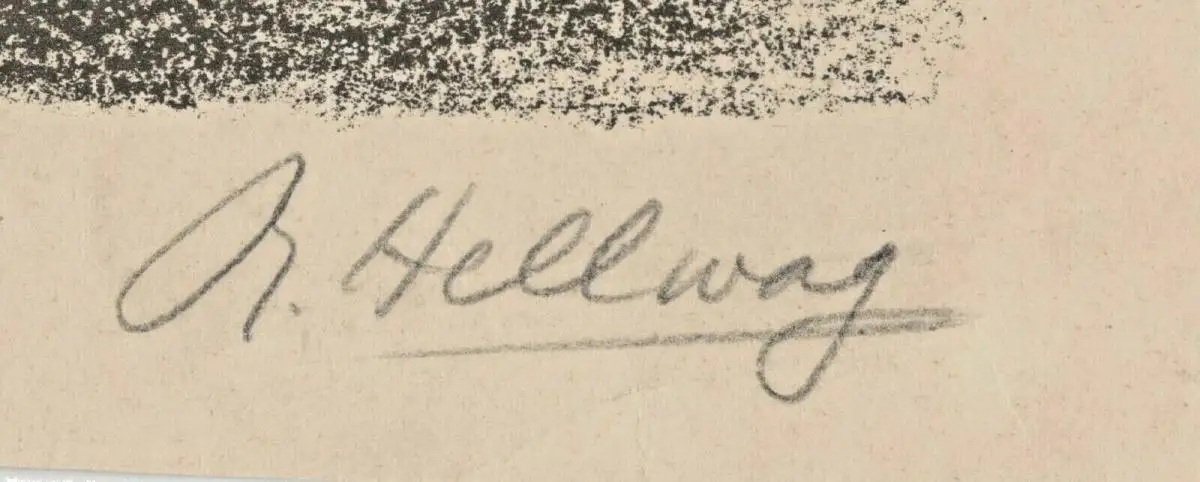 R. Hellwag